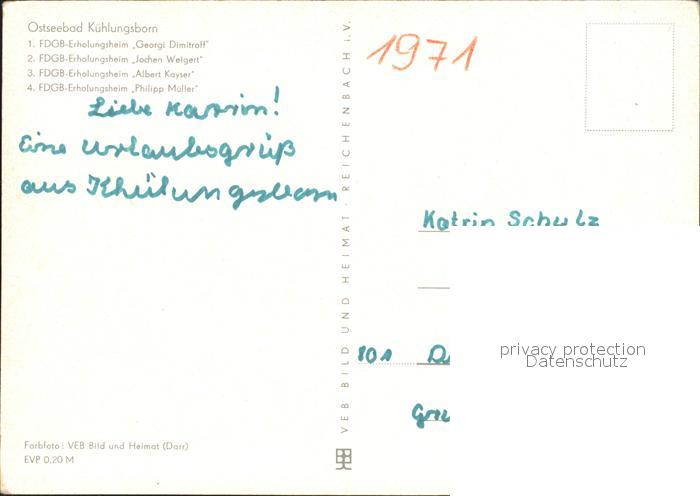 Ostseebad Kühlungsborn
1. FDGB-Erholungsheim „Georgi Dimitroff"
2. FDGB-Erholungsheim „Jochen Weigert"
3. FDGB-Erholungsheim „Albert Kayser"
4. FDGB-Erholungsheim „Philipp Müller"
Liebe Katrin!
Eine Urlaubsgrüß
aus Khülungsborn
Farbfoto: VEB Bild und Heimat (Darr)
EVP 0,20 M
VEB BILD UND HEIMAT · REICHENBACH i. V.
1971
Katrin Schulz
801
privacy protection
Datenschutz